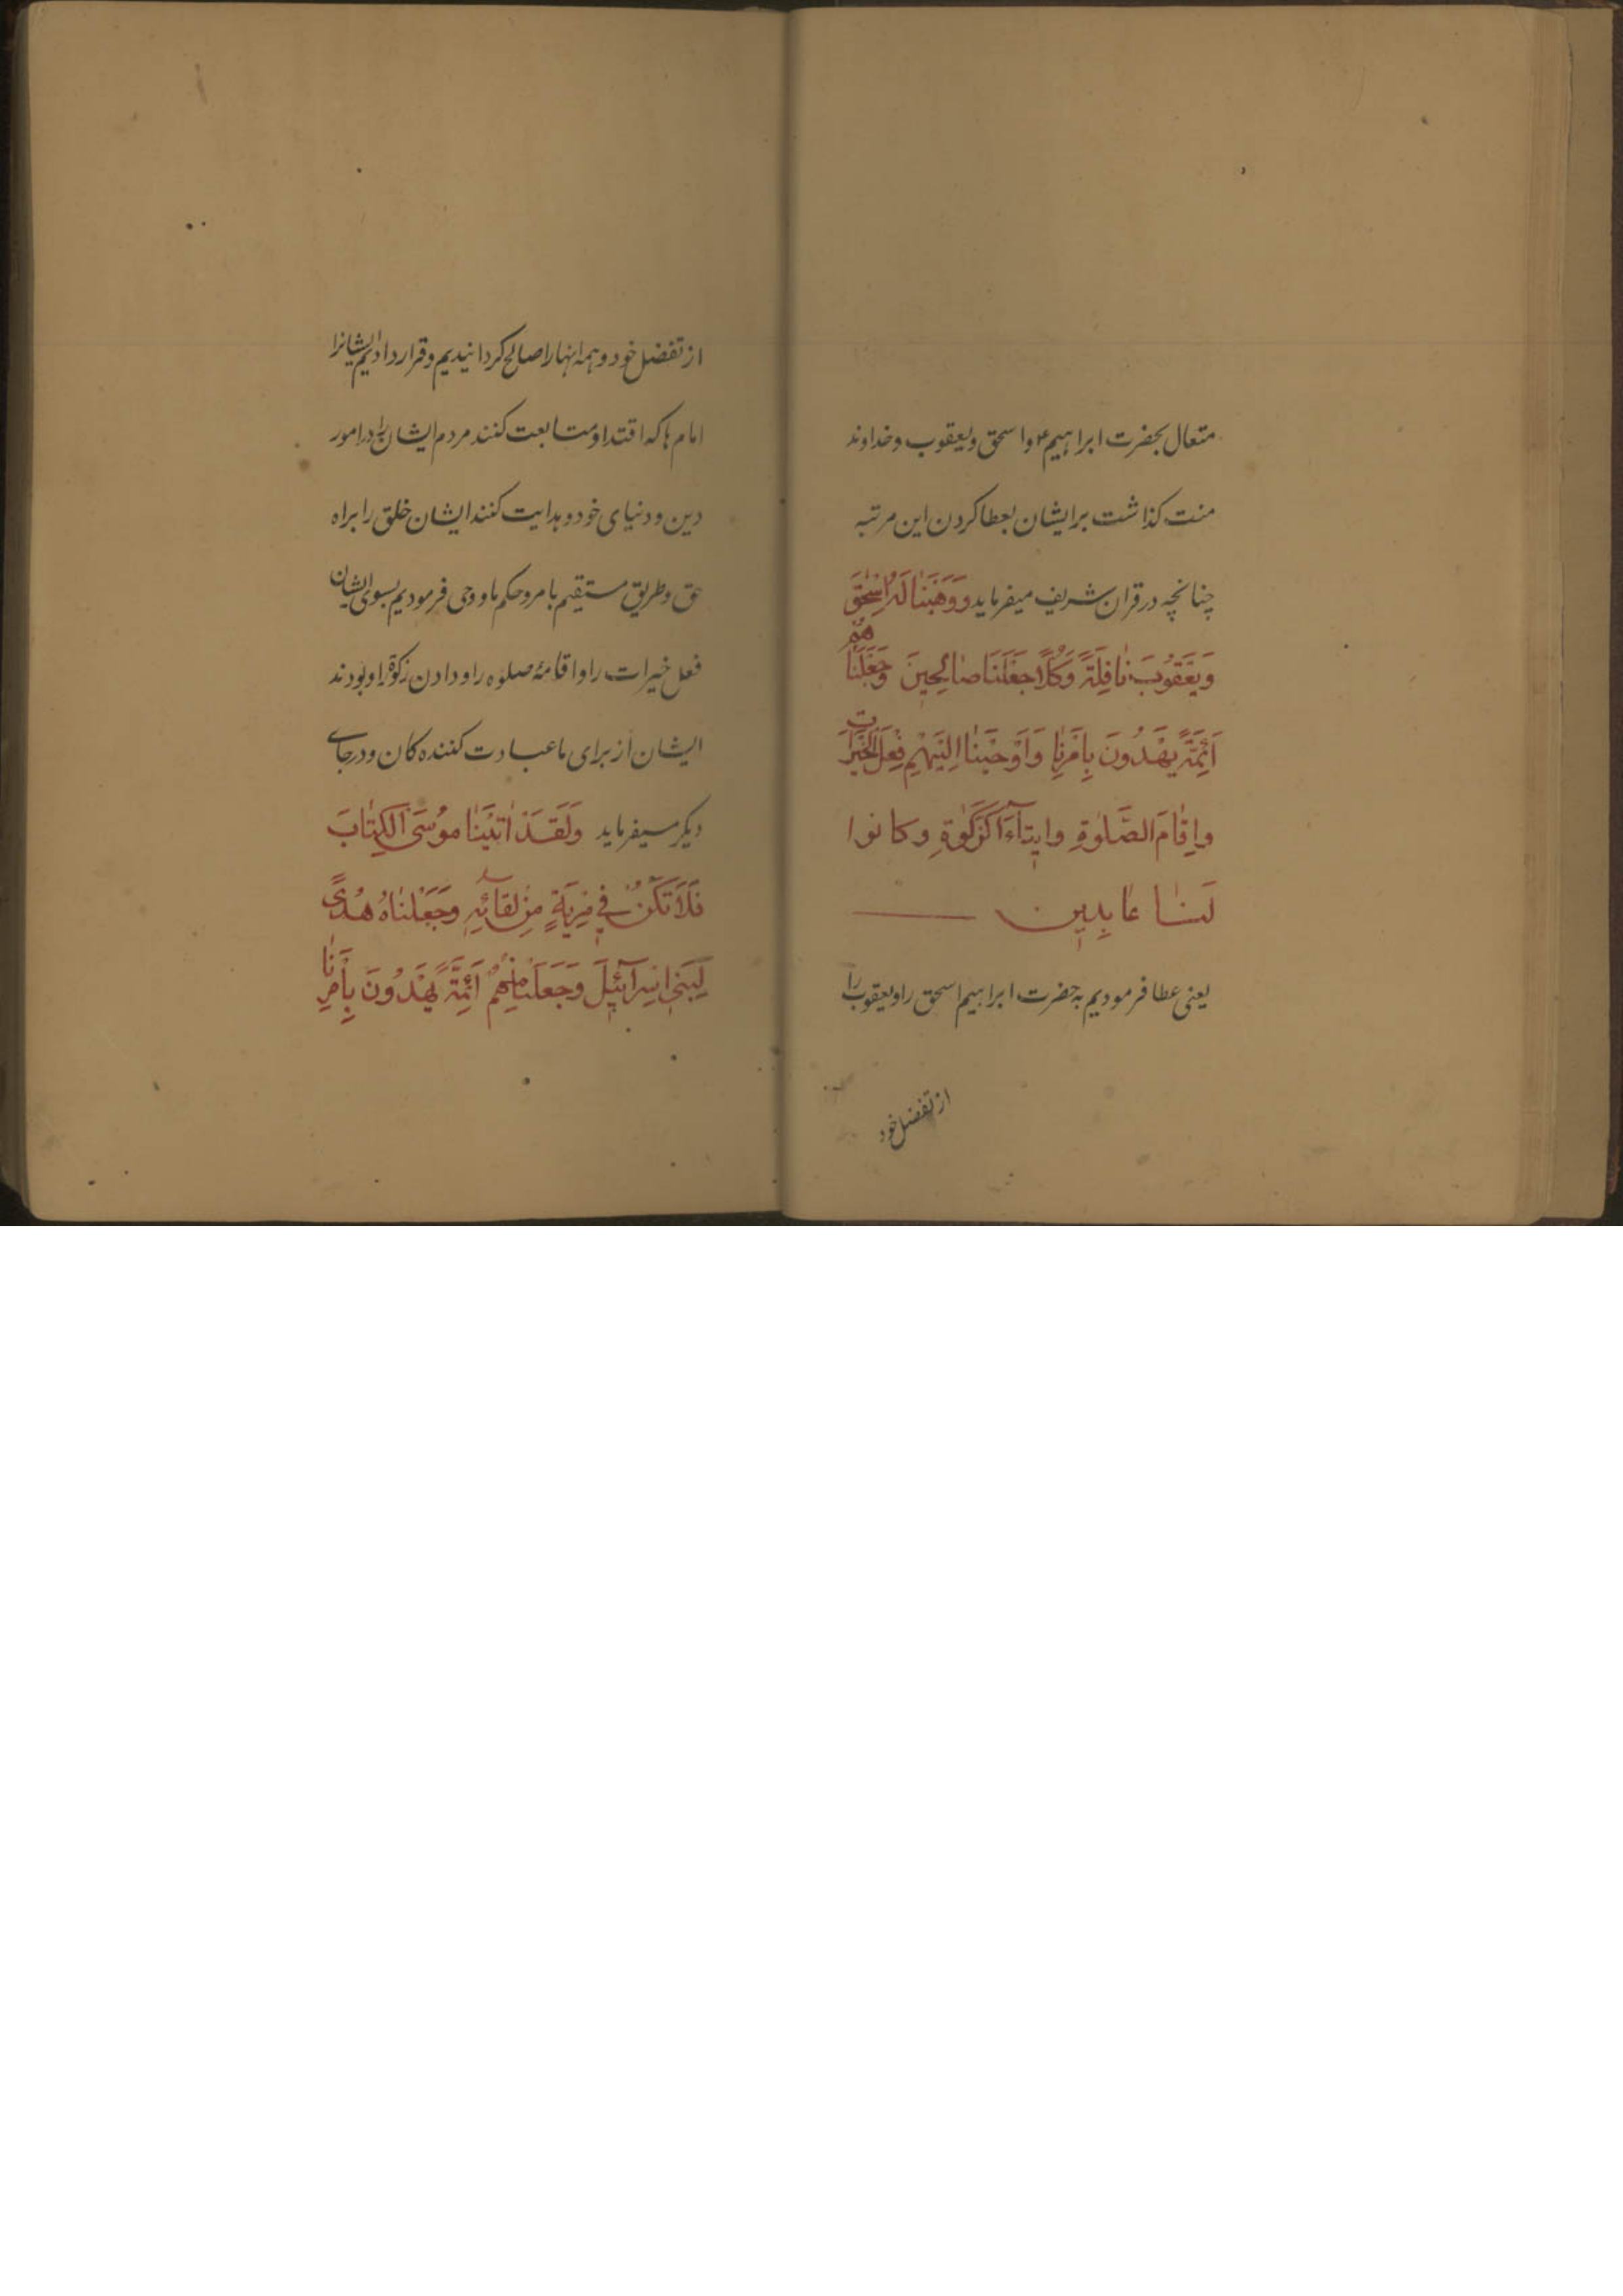 متعال بحضرت ابراهیم ع واسحق ویعقوب وخداوند
منت کذاشت برایشان بعطا کردن این مرتبه
چنانچه در قران شریف میفرماید وَوَهَبْنٰا لَهُ اِسْحٰقَ
وَیَعْقُوبَ نٰافِلَةً وَکُلّاً جَعَلْنَا صٰالِحِینَ وَجَعَلْنٰا هُمْ
اَئِمَّةً یَهْدُونَ بِاَمْرِنٰا وَاَوْحَیْنٰا اِلَیْهِمْ فِعْلَ الْخَیْرٰاتِ
وَاِقٰامَ الصَّلٰوةِ وایتٰآءَ الزَّکٰوةِ وکانوا
لَنٰا عٰابِدِین
یعنی عطا فرمودیم به حضرت ابراهیم اسحق را ویعقوب را
از تفضل خود
از تفضل خود وهمه انها را صالح کردانیدیم وقرار دادیم ایشانرا
امام ها که اقتدا ومتابعت کنند مردم ایشان را در امور
دین ودنیای خود وهدایت کنند ایشان خلق را براه
حق وطریق مستقیم بامر وحکم ما ووحی فرمودیم بسوی ایشان
فعل خیرات را واقامهٔ صلوه را ودادن زکوة را وبودند
ایشان از برای ما عبادت کننده کان ودرجای
دیکر میفرماید وَلَقَدْ اٰتَیْنٰا مُوسَی الْکِتٰابَ
فَلَا تَکُنْ فِی مِرْیَةٍ مِنْ لِقٰآئِهِ وَجَعَلْنٰاهُ هُدًی
لِبَنِی اِسْرٰآئِیلَ وَجَعَلْنٰا مِنْهُمْ اَئِمَّةً یَهْدُونَ بِاَمْرِنٰا